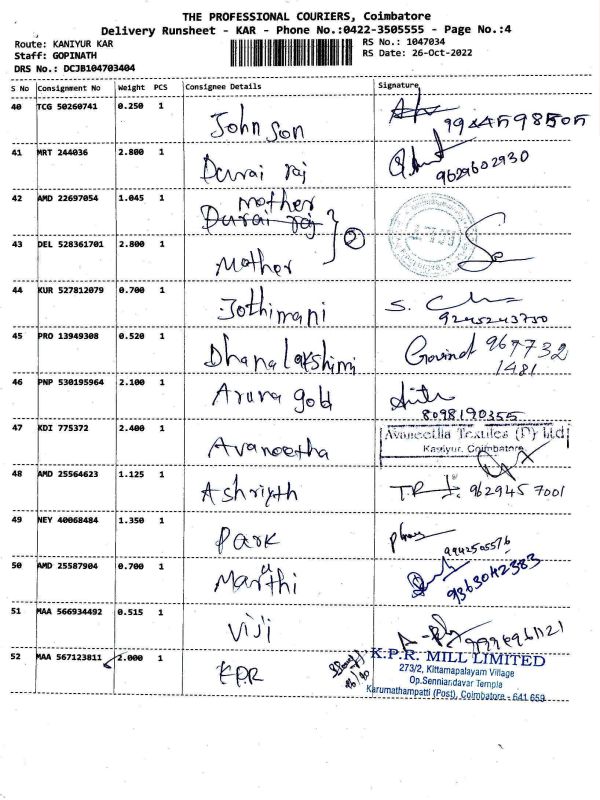 THE PROFESSIONAL COURIERS, Coimbatore
Delivery Runsheet - KAR - Phone No.:0422-3505555 - Page No.:4
Route: KANIYUR KAR
Staff: GOPINATH
DRS No.: DCJB104703404
RS No.: 1047034
RS Date: 26-Oct-2022
S No Consignment No Weight PCS Consignee Details Signature
40 TCG 50260741 0.250 1 Johnson
41 MRT 244036 2.800 1 Durai raj 9629602930
42 AMD 22697054 1.045 1 Mother
Durai raj
2
43 DEL 528361701 2.800 1 Mother
44 KUR 527812079 0.700 1 Jothimani S.
9245243730
45 PRO 13949308 0.520 1 Dhanalakshimi Govind 967732
1481
46 PNP 530195964 2.100 1 Aruva gold
8098190355
47 KDI 775372 2.400 1 Avaneetha Avaneetha Textiles (P) Ltd
Kaniyur, Coimbatore
48 AMD 25564623 1.125 1 Ashriyth 9629457001
49 NEY 40068484 1.350 1 Park
9942505576
50 AMD 25587904 0.700 1 Maruthi 9363042383
51 MAA 566934492 0.515 1 Viji
52 MAA 567123811 2.000 1 KPR
K.P.R. MILL LIMITED
273/2, Kittampalayam Village
Op.Senniandavar Temple
Karumathampatti (Post), Coimbatore - 641 659